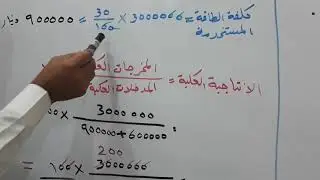 كلفة الطاقة المستخدمة = 3000000 × 30/100 = 900000 دينار
الانتاجية الكلية = المخرجات الكلية / المدخلات الكلية
= 3000000 / 900000+600000 × 100
200
= 3000000 × 100